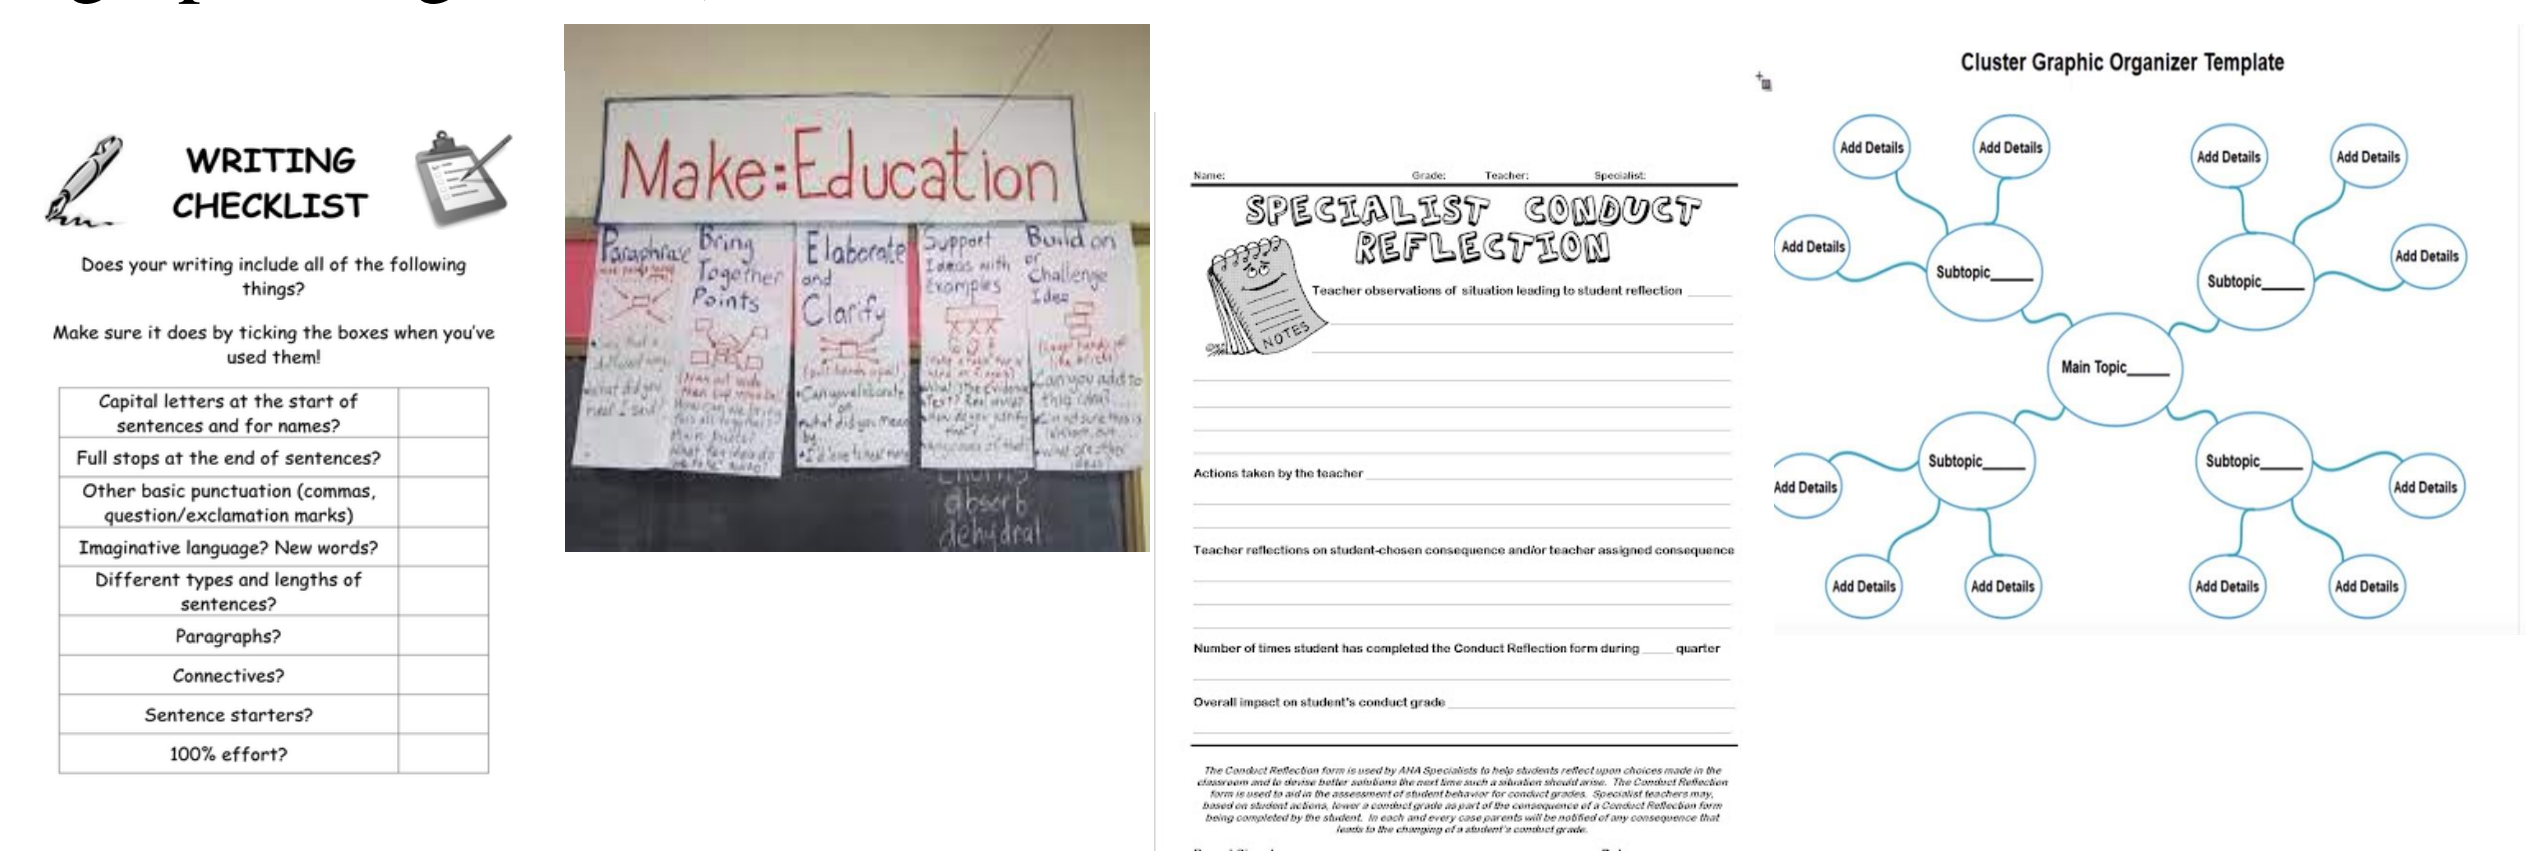 WRITING
CHECKLIST
Does your writing include all of the following
things?
Make sure it does by ticking the boxes when you've
used them!
Capital letters at the start of
sentences and for names?
Full stops at the end of sentences?
Other basic punctuation (commas,
question/exclamation marks)
Imaginative language? New words?
Different types and lengths of
sentences?
Paragraphs?
Connectives?
Sentence starters?
100% effort?
Make:Education
Paraphrase
Bring
Together
Points
Elaborate
and
Clarify
Support
Ideas with
Examples
Build on
or
Challenge
Idea
Can you elaborate
what did you mean
by
Can you add to
this idea?
absorb
dehydrat
Name: Grade: Teacher: Specialist:
SPECIALIST CONDUCT
REFLECTION
NOTES
Teacher observations of situation leading to student reflection ______
Actions taken by the teacher
Teacher reflections on student-chosen consequence and/or teacher assigned consequence
Number of times student has completed the Conduct Reflection form during ____ quarter
Overall impact on student's conduct grade
The Conduct Reflection form is used by AHA Specialists to help students reflect upon choices made in the
classroom and to devise better solutions the next time such a situation should arise. The Conduct Reflection
form is used to aid in the assessment of student behavior for conduct grades. Specialist teachers may,
based on student actions, lower a conduct grade as part of the consequence of a Conduct Reflection form
being completed by the student. In each and every case parents will be notified of any consequence that
leads to the changing of a student's conduct grade.
Cluster Graphic Organizer Template
Add Details
Add Details
Add Details
Add Details
Add Details
Add Details
Subtopic_____
Subtopic_____
Main Topic_____
Subtopic_____
Subtopic_____
Add Details
Add Details
Add Details
Add Details
Add Details
Add Details